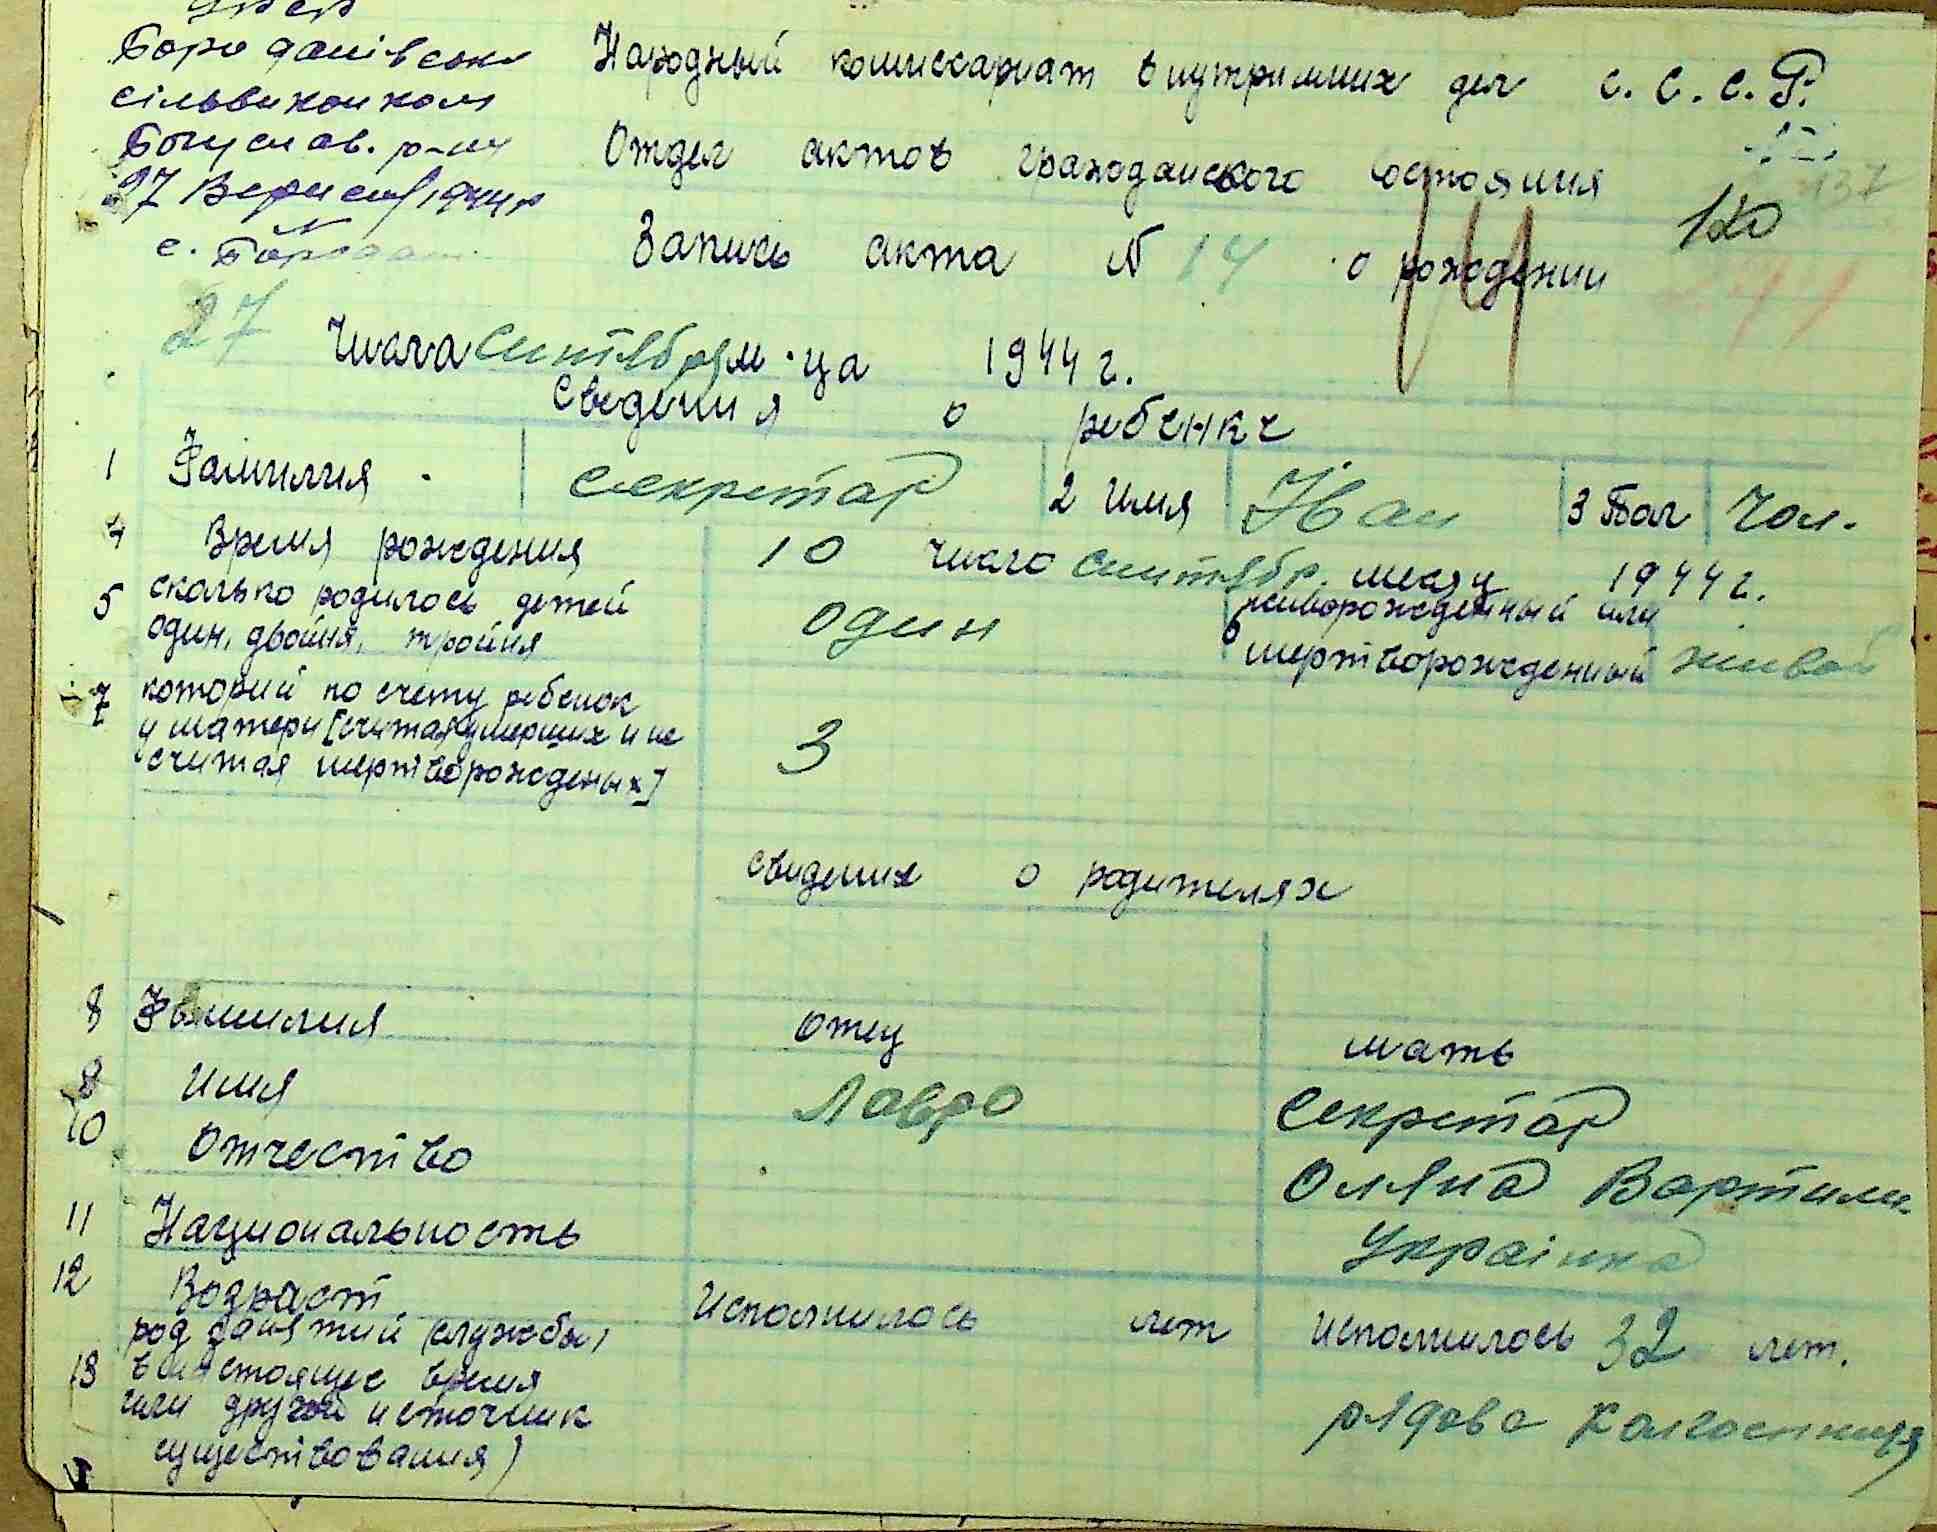 УРСР
Бороданівська
сільвиконком
Богуслав. р-ну
27 Вересня 1944 р
с.
Народный комиссариат внутримних дел С.С.С.Р.
Отдел актов гражданского состояния
137
120
Запись акта № 14 о рождении
14
27 числа сентября м-ца 1944 г.
Сведения о ребенке
1 Фамилия. Секретар 2 Имя Іван 3 Пол Чол.
4 Время рождения 10 число сентябр. месяц 1944 г.
5 сколько родилось детей
один, двойня, тройня один
6 живорожденный или
мертворожденный живой
7 которий по счету ребенок
у матери [считая умерших и не
считая мертворожденых] 3
сведения о родителях
8 Фамилия отец мать
9 Имя Лавро Секретар
10 Отчество Оляна Вартили.
11 Национальность Українка
12 Возраст Исполнилось лет исполнилось 32 лет.
13 род занятий (службы,
в настоящее время
или другой источник
существования) рядова колгоспниця